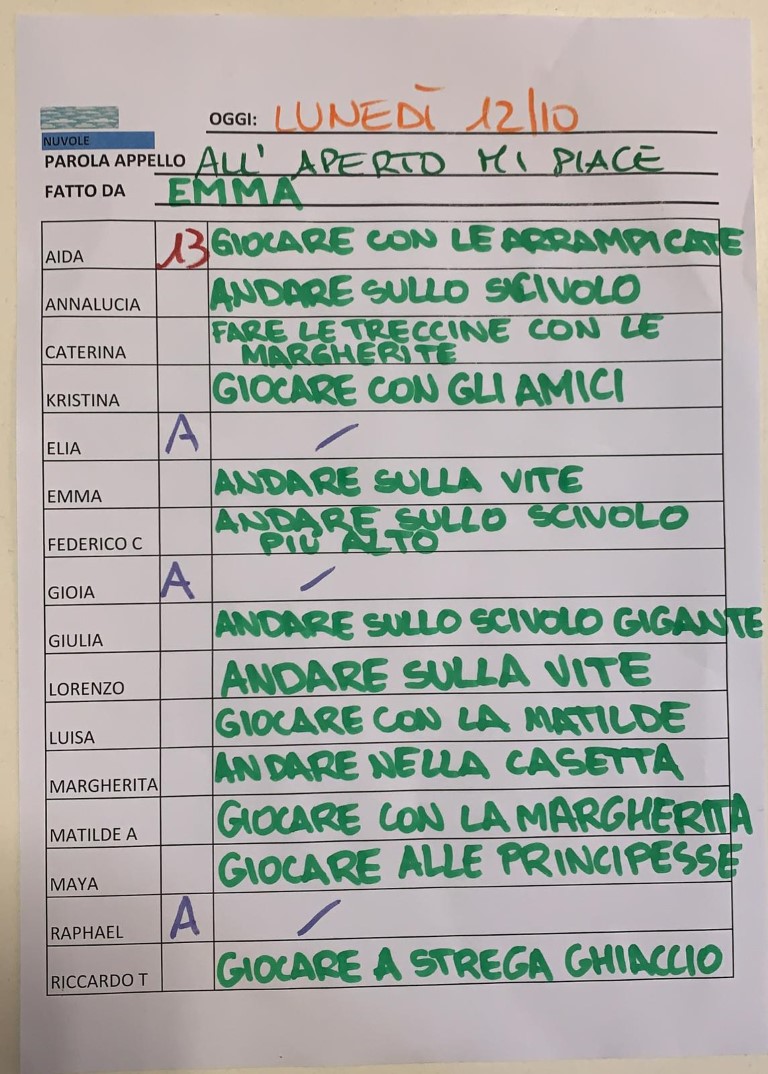 OGGI: LUNEDÌ 12/10
NUVOLE
PAROLA APPELLO ALL' APERTO MI PIACE
FATTO DA EMMA
AIDA 13 GIOCARE CON LE ARRAMPICATE
ANNALUCIA ANDARE SULLO SCIVOLO
CATERINA FARE LE TRECCINE CON LE
MARGHERITE
KRISTINA GIOCARE CON GLI AMICI
ELIA A /
EMMA ANDARE SULLA VITE
FEDERICO C ANDARE SULLO SCIVOLO
PIÙ ALTO
GIOIA A /
GIULIA ANDARE SULLO SCIVOLO GIGANTE
LORENZO ANDARE SULLA VITE
LUISA GIOCARE CON LA MATILDE
MARGHERITA ANDARE NELLA CASETTA
MATILDE A GIOCARE CON LA MARGHERITA
MAYA GIOCARE ALLE PRINCIPESSE
RAPHAEL A /
RICCARDO T GIOCARE A STREGA GHIACCIO